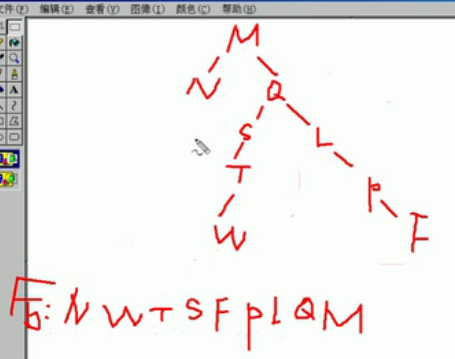 文件(F) 编辑(E) 查看(V) 图像(I) 颜色(C) 帮助(H)
A
M
N Q
S L
T P
W F
后: N W T S F P L Q M